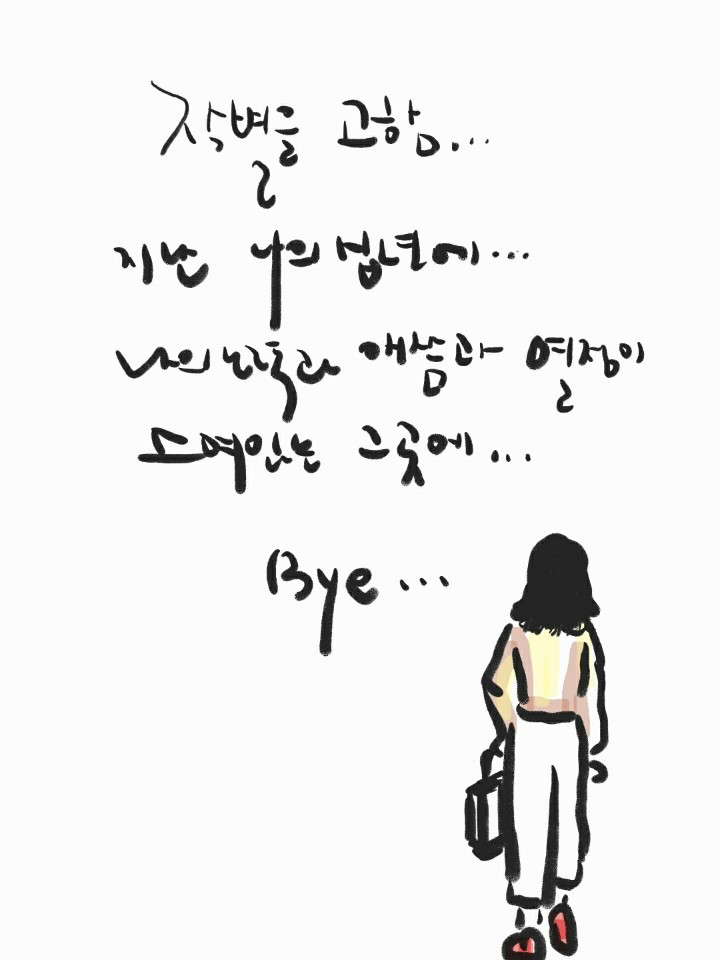 작별을 고함...
지난 나의 십년에...
나의 노력과 애씀과 열정이
소여있는 그곳에...
Bye...